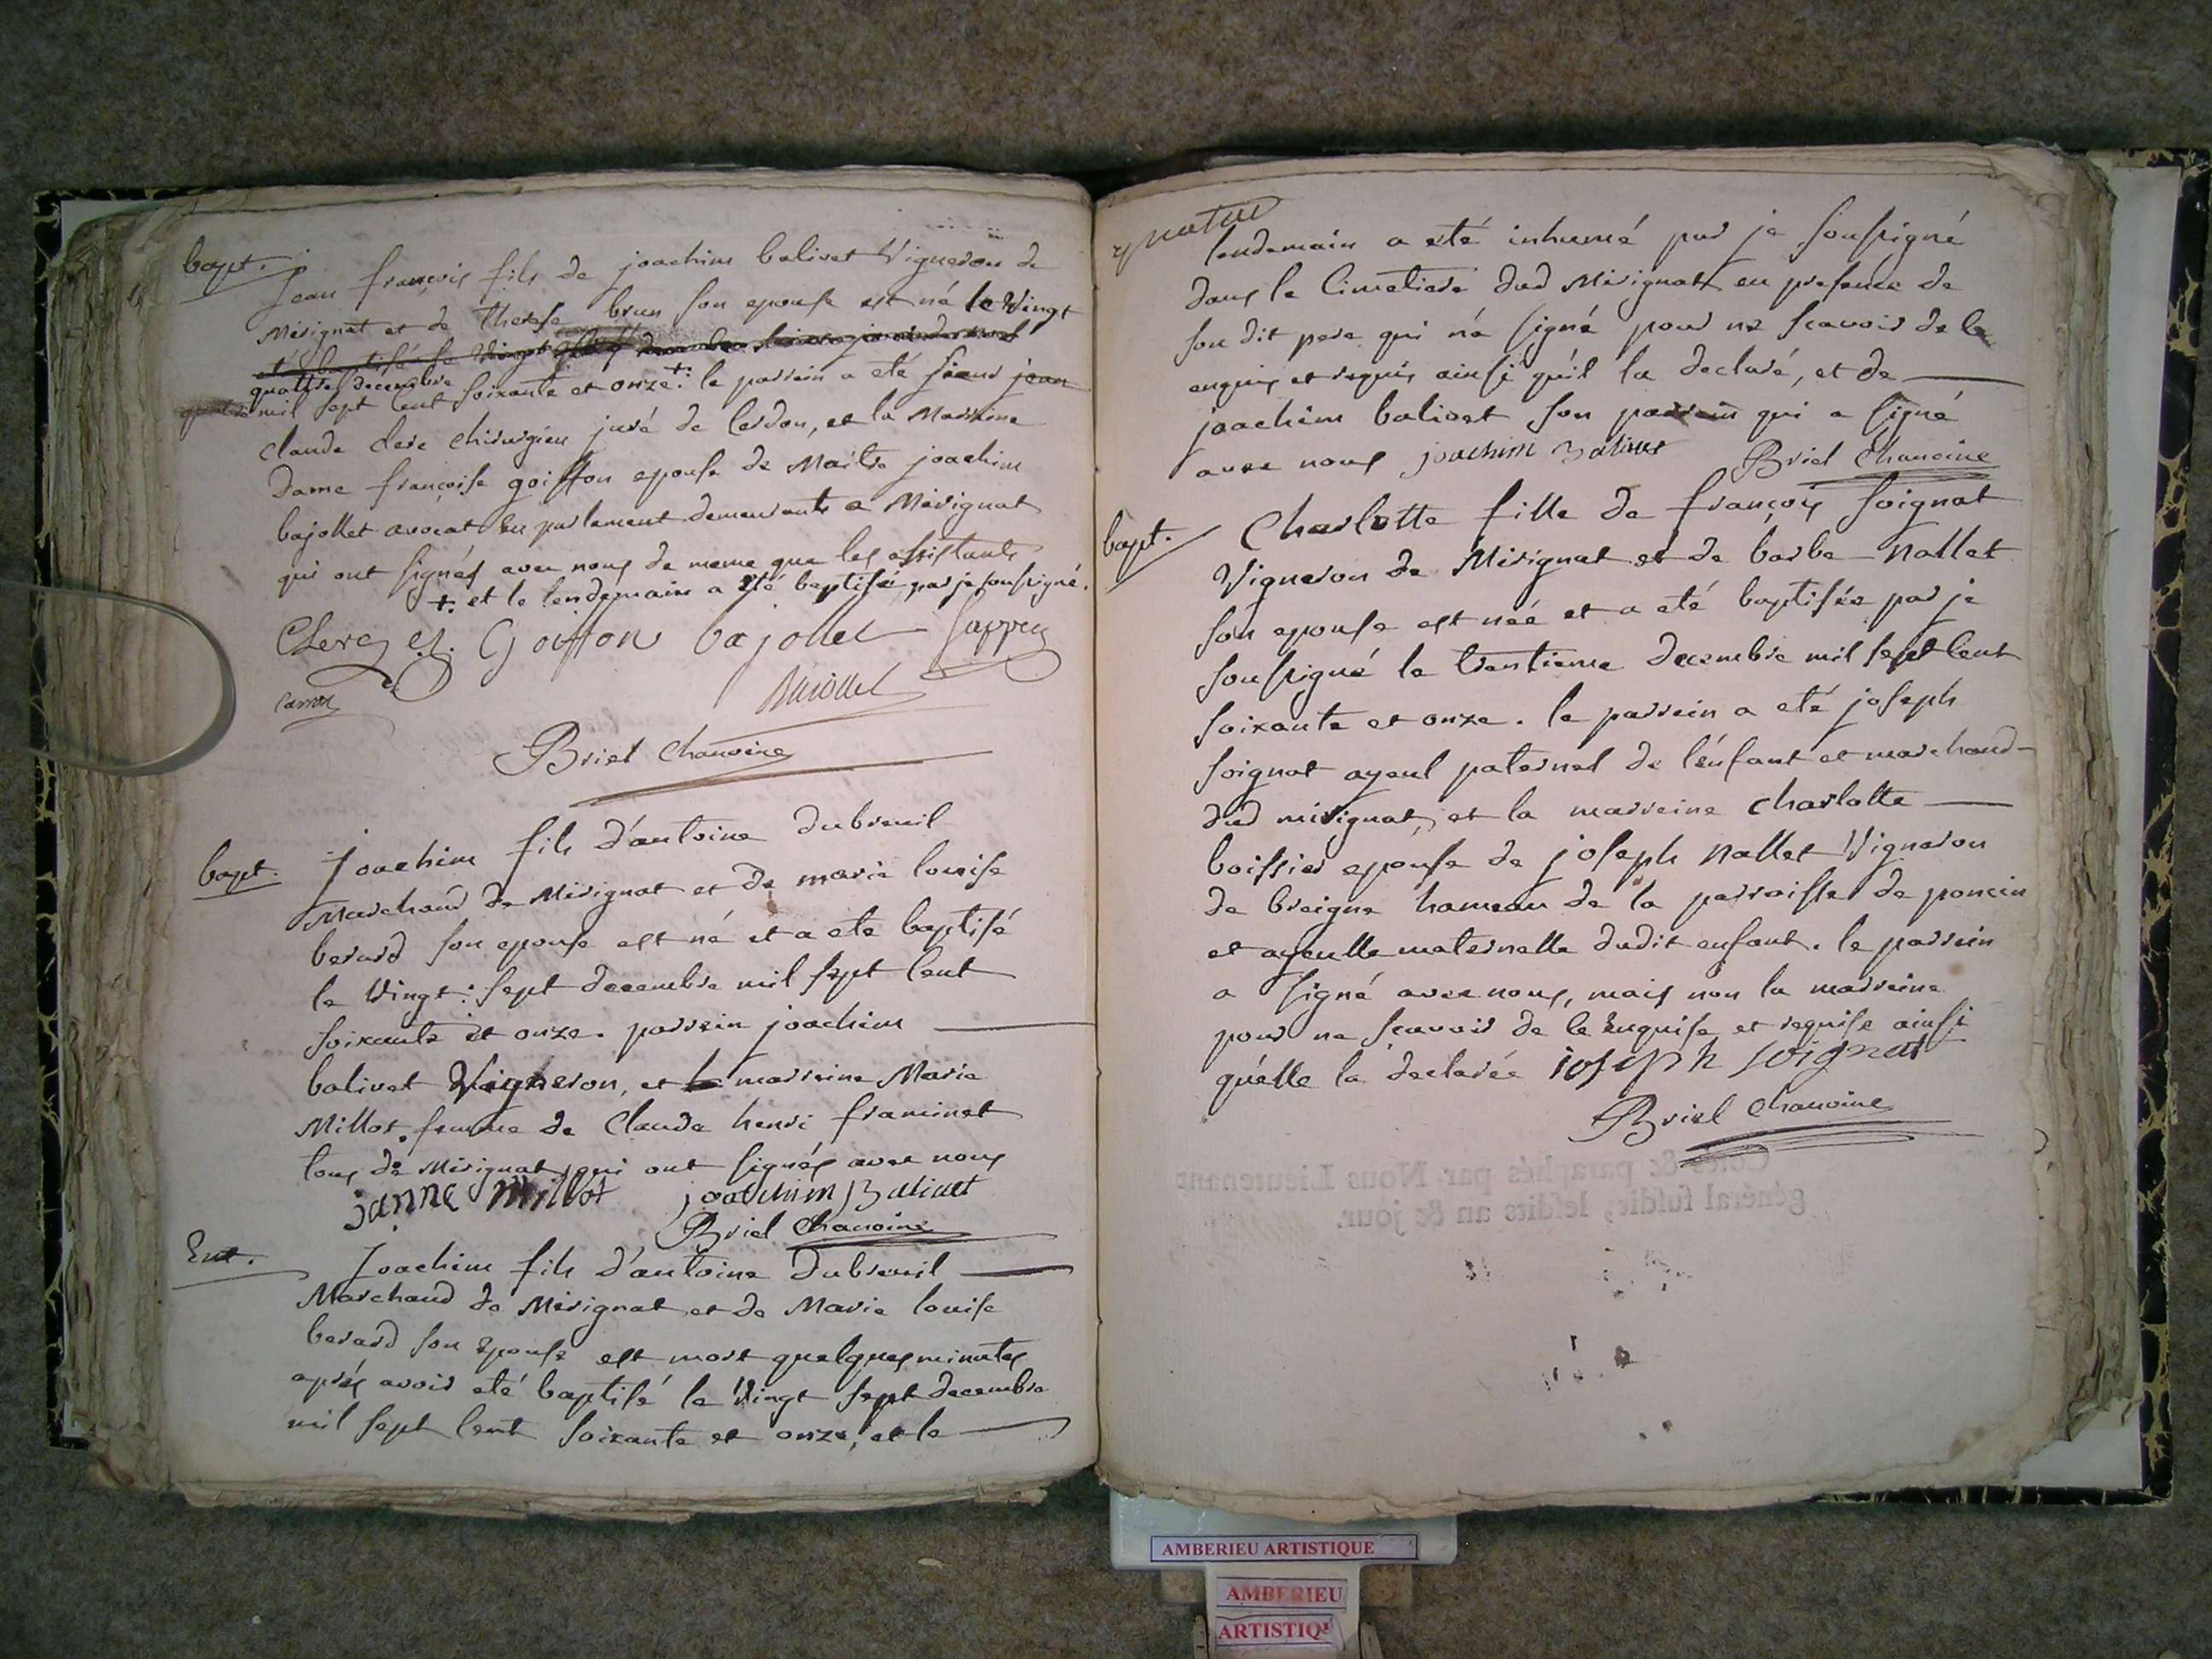 bapt. Jean françois fils de joachim balivet Vigneron de
Mérignat et de Therese brun son epouse est né le Vingt
et baptisé le Vingt
quattre decembre
mil sept Cent soixante et onze +. le parrein a eté sieur jean
claude clerc chirurgien juré de Cerdon, et la Marreine
Dame françoise goiffon epouse de Maitre joachim
bajollet avocat en parlement demeurants a Mérignat
qui ont signés avec nous de meme que les assistants
+. et le lendemain a eté baptisé par je soussigné.
Clerc Goiffon bajollet
Briel Chanoine
bapt. Joachim fils d'antoine Dubreuil
Marchand de Mérignat et de marie louise
berard son epouse est né et a ete baptisé
le Vingt: sept decembre mil sept Cent
soixante et onze. parrein joachim
balivet Vigneron, et la marreine Marie
Millot femme de Claude henri framinet
tous de Mérignat, qui ont signés avec nous
janne millot joachim Balivet
Briel Chanoine
Ent. Joachim fils d'antoine Dubreuil
Marchand de Mérignat et de Marie louise
berard son epouse est mort quelques minutes
aprés avoir eté baptisé le Vingt sept decembre
mil sept Cent soixante et onze, et le
lendemain a eté inhumé par je soussigné
dans le Cimetiere dud Mérignat en presence de
son dit pere qui n'a signé pour ne scavoir de le
enquis et requis ainsi qu'il la declaré, et de
joachim balivet son parrein qui a signé
avec nous joachim Balivet Briel Chanoine
bapt. Charlotte fille de françois soignat
Vigneron de Mérignat et de barbe Nallet
son epouse est née et a eté baptisée par je
soussigné le trentieme decembre mil sept Cent
soixante et onze. le parrein a eté joseph
soignat ayeul paternel de l'enfant et marchand
dud mérignat, et la marreine Charlotte
boissier epouse de joseph Nallet Vigneron
de breigne hameau de la parroisse de poncin
et ayeulle maternelle dudit enfant. le parrein
a signé avec nous, mais non la marreine
pour ne scavoir de le Enquise et requise ainsi
qu'elle la declarée joseph soignat
Briel Chanoine
Cotés & paraphés par Nous Lieutenant
général susdit, lesdits an & jour.
AMBERIEU ARTISTIQUE
AMBERIEU
ARTISTIQ